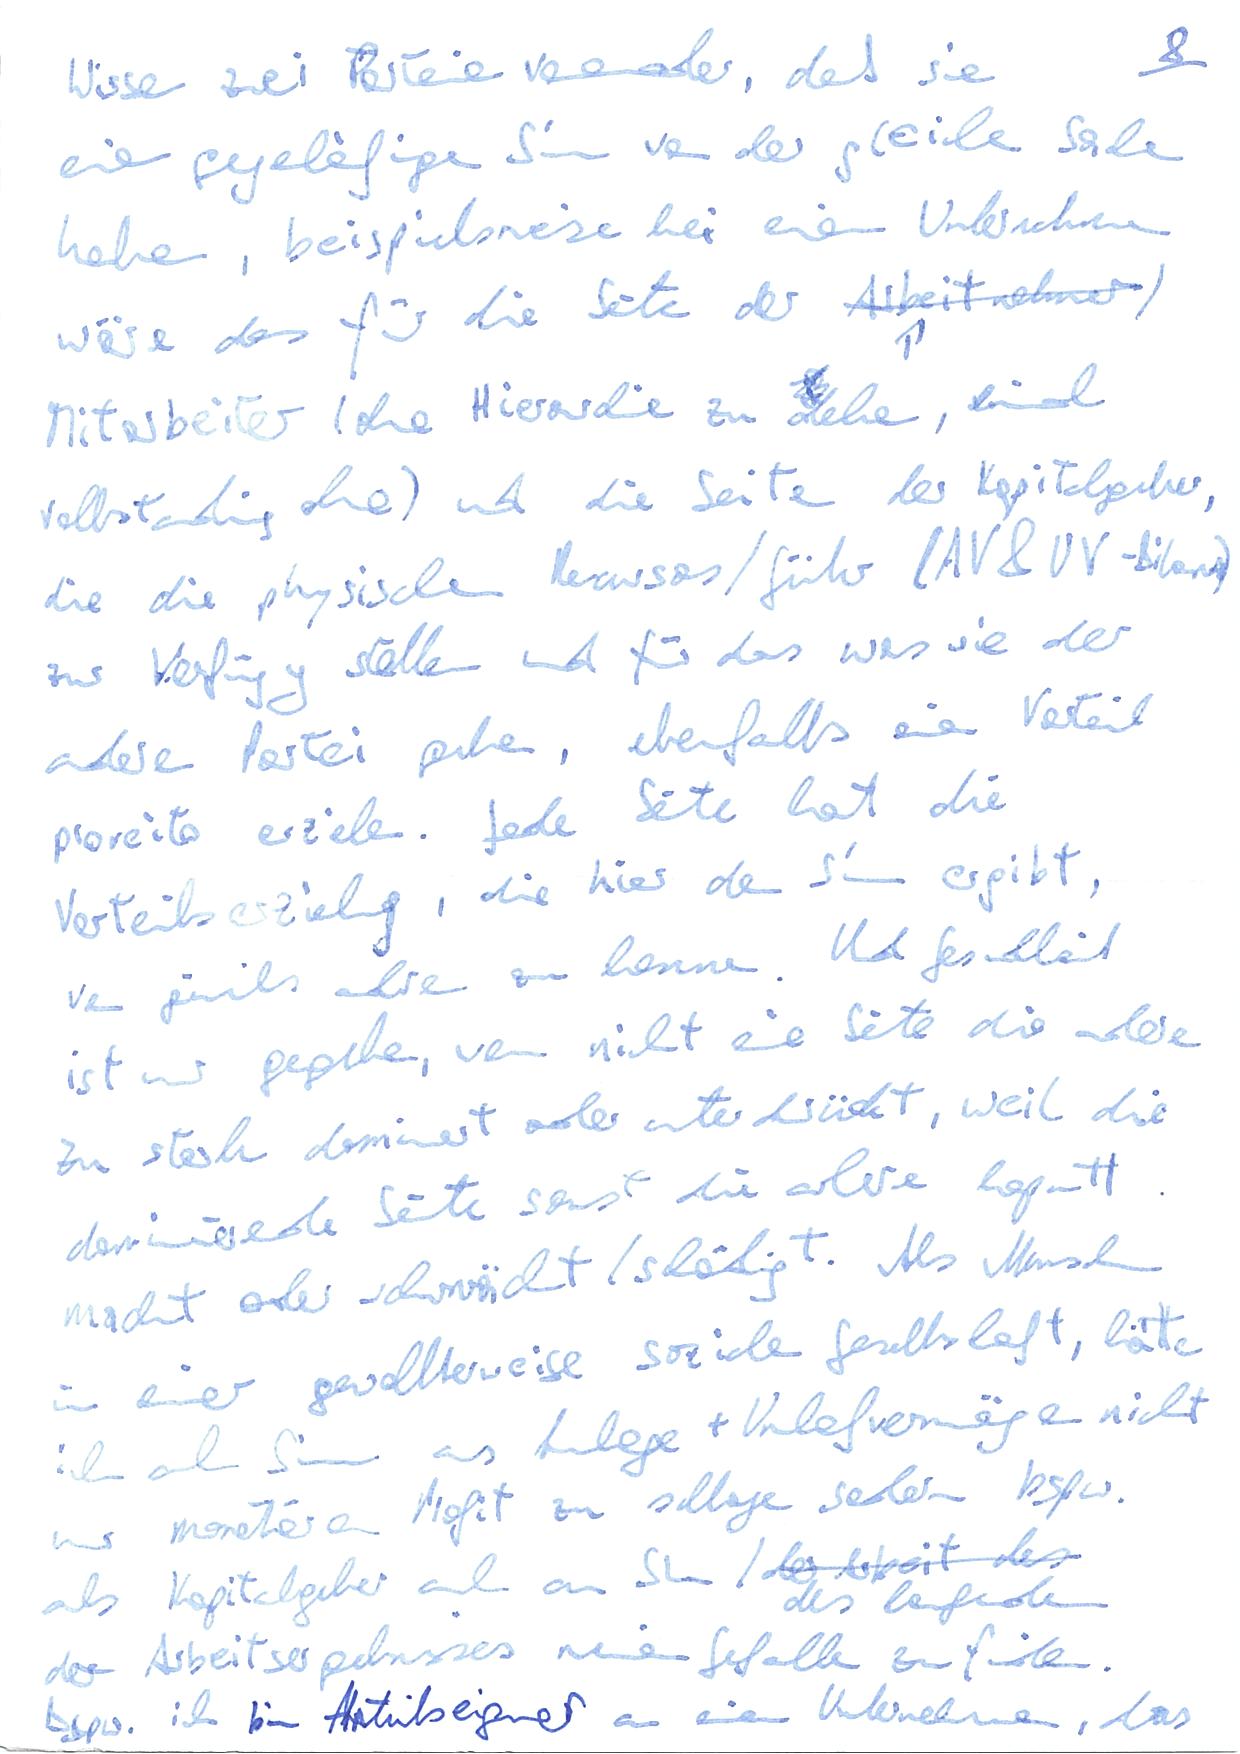 8
Wissen zwei Parteien voneinander, daß sie
einen gegenläufigen Sinn von der gleichen Sache
haben, beispielsweise bei einem Unternehmen
wäre das für die Seite der Arbeitnehmer /
Mitarbeiter (ohne Hierarchie zu sehen, und
vollständig ohne) und die Seite der Kapitalgeber,
die die physischen Resursos/Güter (AV & UV -Bilanz)
zur Verfügung stellen und für das was sie der
anderen Partei geben, ebenfalls einen Vorteil
erzielen. Jede Seite hat die
Vorteilserzielung, die hier den Sinn ergibt,
vom jeweils anderen zu kennen. Und Gesundheit
ist nur gegeben, wenn nicht eine Seite die andere
zu stark dominiert oder unterdrückt, weil die
dominierende Seite sonst die andere kaputt
macht oder schwächt / schädigt. Als Mensch
in einer gewollterweise sozialen Gesellschaft, hätte
ich auch Sinn aus Anlage + Umlaufvermögen nicht
nur monetären Profit zu schlagen sondern bspw.
als Kapitalgeber auch am Sinn / der Arbeit des
des laufenden
der Arbeitsergebnisses meinen Gefallen zu finden.
bspw. ich bin Anteilseigner an einem Unternehmen, das